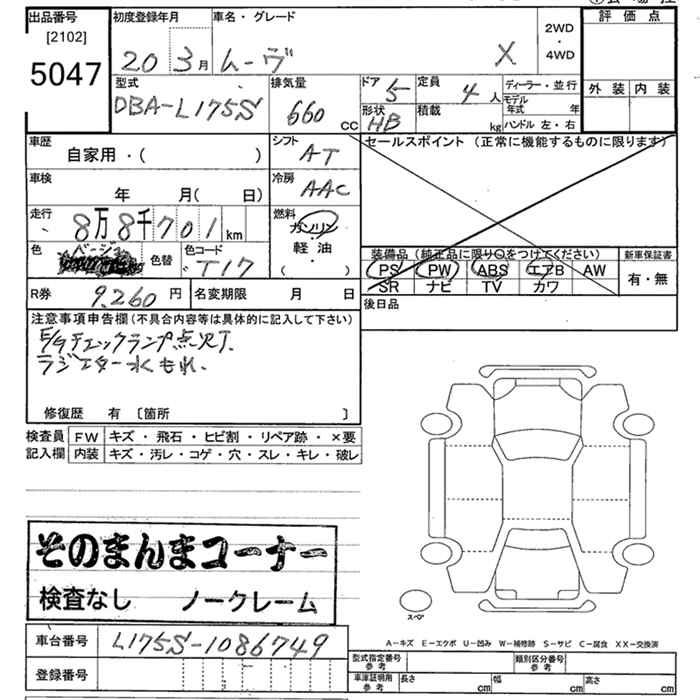 出品番号 [2102] 5047
初度登録年月 20 3月
車名・グレード ムーヴ X
2WD・4WD
評価点
外装 内装
型式 DBA-L175S
排気量 660 cc
ドア 5
形状 HB
定員 4人
積載 kg
ディーラー・並行
モデル年式 年
ハンドル 左・右
車歴 自家用・( )
シフト AT
セールスポイント (正常に機能するものに限ります)
車検 年 月( 日)
冷房 AAC
走行 8万8千701km
燃料 ガソリン 軽油 ( )
色 ベージュ 色替
色コード T17
装備品 (純正品に限り○をつけてください)
PS PW ABS エアB AW
SR ナビ TV カワ
新車保証書 有・無
R券 9,260円
名変期限 月 日
後日品
注意事項申告欄(不具合内容等は具体的に記入して下さい)
E/gチェックランプ点灯
ラジエター水もれ.
修復歴 有 〔箇所 〕
検査員 FW キズ・飛石・ヒビ割・リペア跡・×要
記入欄 内装 キズ・汚レ・コゲ・穴・スレ・キレ・破レ
そのまんまコーナー
検査なし ノークレーム
スペア
A-キズ E-エクボ U-凹み W-補修跡 S-サビ C-腐食 XX-交換済
車台番号 L175S-1086749
登録番号
型式指定番号 参考
類別区分番号 参考
車庫証明用 参考 長さ cm 幅 cm 高さ cm